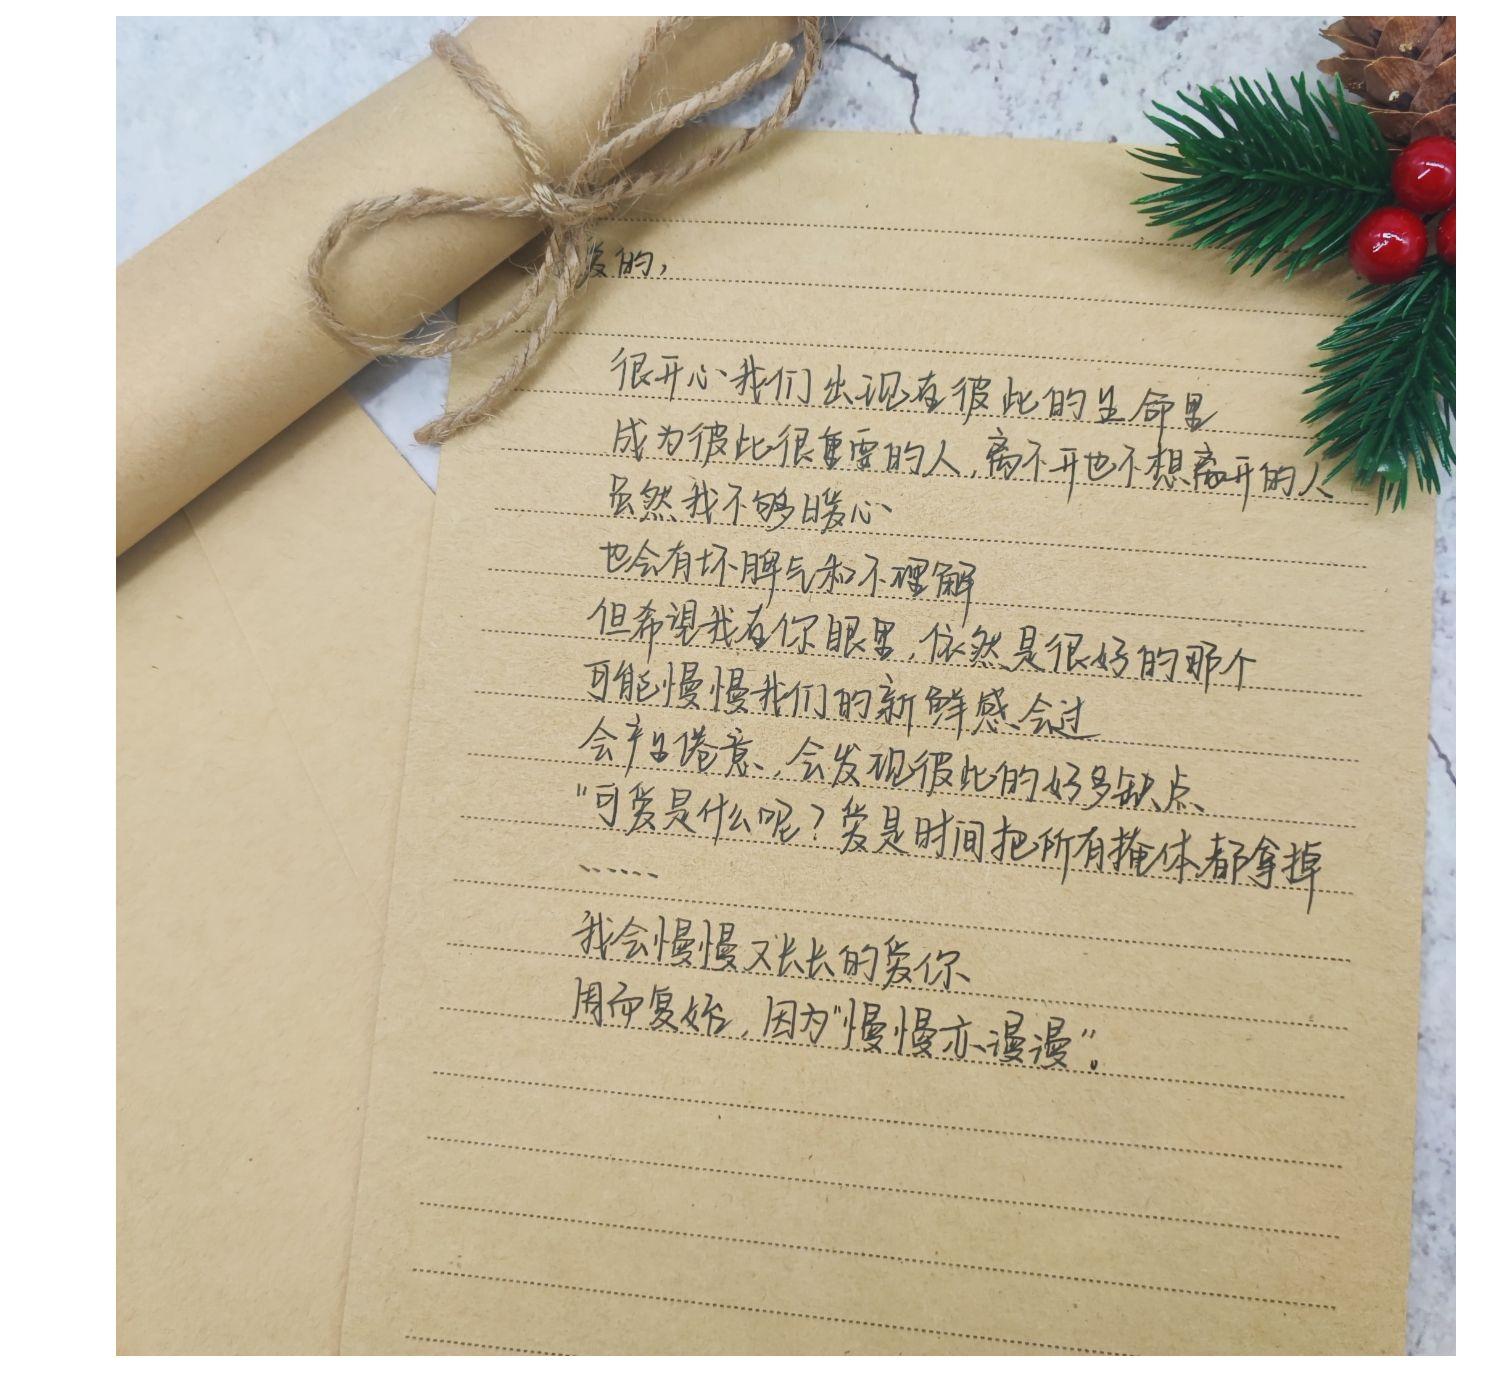 爱的，
很开心我们出现在彼此的生命里
成为彼此很重要的人，离不开也不想离开的人
虽然我不够暖心
也会有坏脾气和不理解
但希望我在你眼里，依然是很好的那个
可能慢慢我们的新鲜感会过
会产生倦意，会发现彼此的好多缺点
“可爱是什么呢？爱是时间把所有掩体都拿掉
……
我会慢慢又长长的爱你
周而复始，因为“慢慢亦漫漫”。